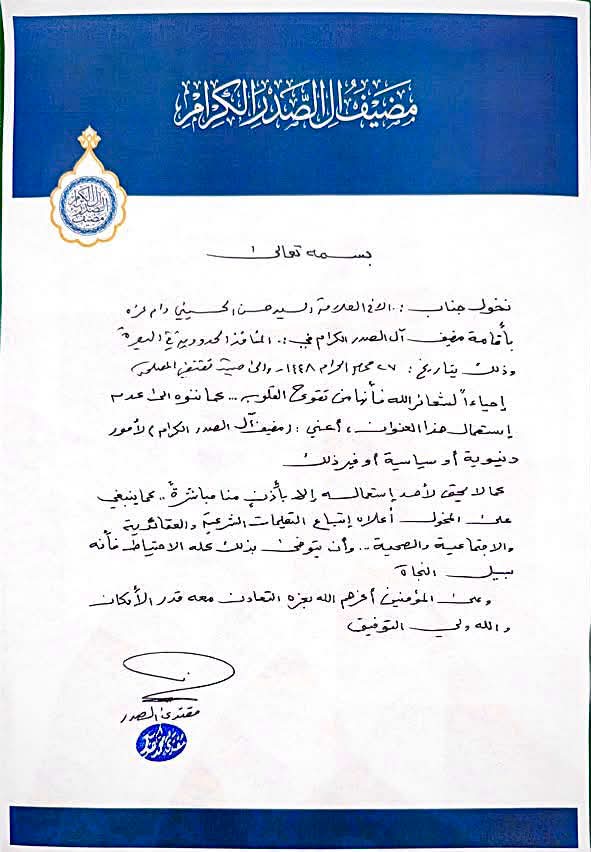 مَضِيفُ آلِ الصَّدْرِ الكِرَامْ
آل الصدر الكرام
مضيف
بسمه تعالى
نخول جناب : .. الأخ العلامة السيد حسن الحسيني دام عزه
بأقامة مضيف آل الصدر الكرام في : .. المنافذ الحدودية في البصرة
وذلك بتاريخ : ٢٧ محرم الحرام ١٤٤٨ .. وإلى حيث تقتضي المصلحة
إحياءاً لشعائر الله فأنها من تقوى القلوب ... كما ننوه الى عدم
إستعمال هذا العنوان ، أعني : (مضيف آل الصدر الكرام) لأمور
دنيوية أو سياسية أو غير ذلك
كما لا يحق لأحد إستعماله إلا بأذنٍ منا مباشرةً .. كما ينبغي
على المخول أعلاه إتباع التعليمات الشرعية والعقائدية
والاجتماعية والصحية ... وأن يتوخى بذلك كله الاحتياط فأنه
سبيل النجاة
وعلى المؤمنين أعزهم الله بعزه التعاون معه قدر الأمكان
والله ولي التوفيق
مقتدى الصدر